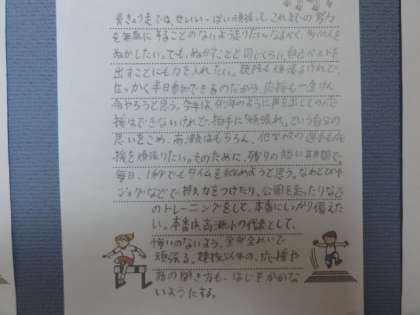 長きょり走では、せいいっぱい頑張って、これまでの努力
を無駄にすることのないよう走りたい。なるべく、多くの人を
ぬかしたい。でも、ぬかすことと同じくらい、自己ベストを
出すことにも力を入れたい。競技も頑張るけれど、
せっかく半日参加できるのだから、応援も一生けん
命やろうと思う。今年は、例年のように声を出しての応
援はできないけれど、拍手に「頑張れ。」という自分の
思いをこめ、高瀬はもちろん、他学校の選手も応
援を頑張りたい。そのために、残りの短い期間で、
毎日、1秒でもタイムを縮めようと思う。なわとびや
ジョグなどで、持久力をつけたり、公園を走ったりなど
のトレーニングをして、本番にしっかり備えた
い。本番は、高瀬小の代表として、
悔いのないよう、全力で
頑張る。競技以外の、応援や
話の聞き方も、はじをかかな
いようにする。